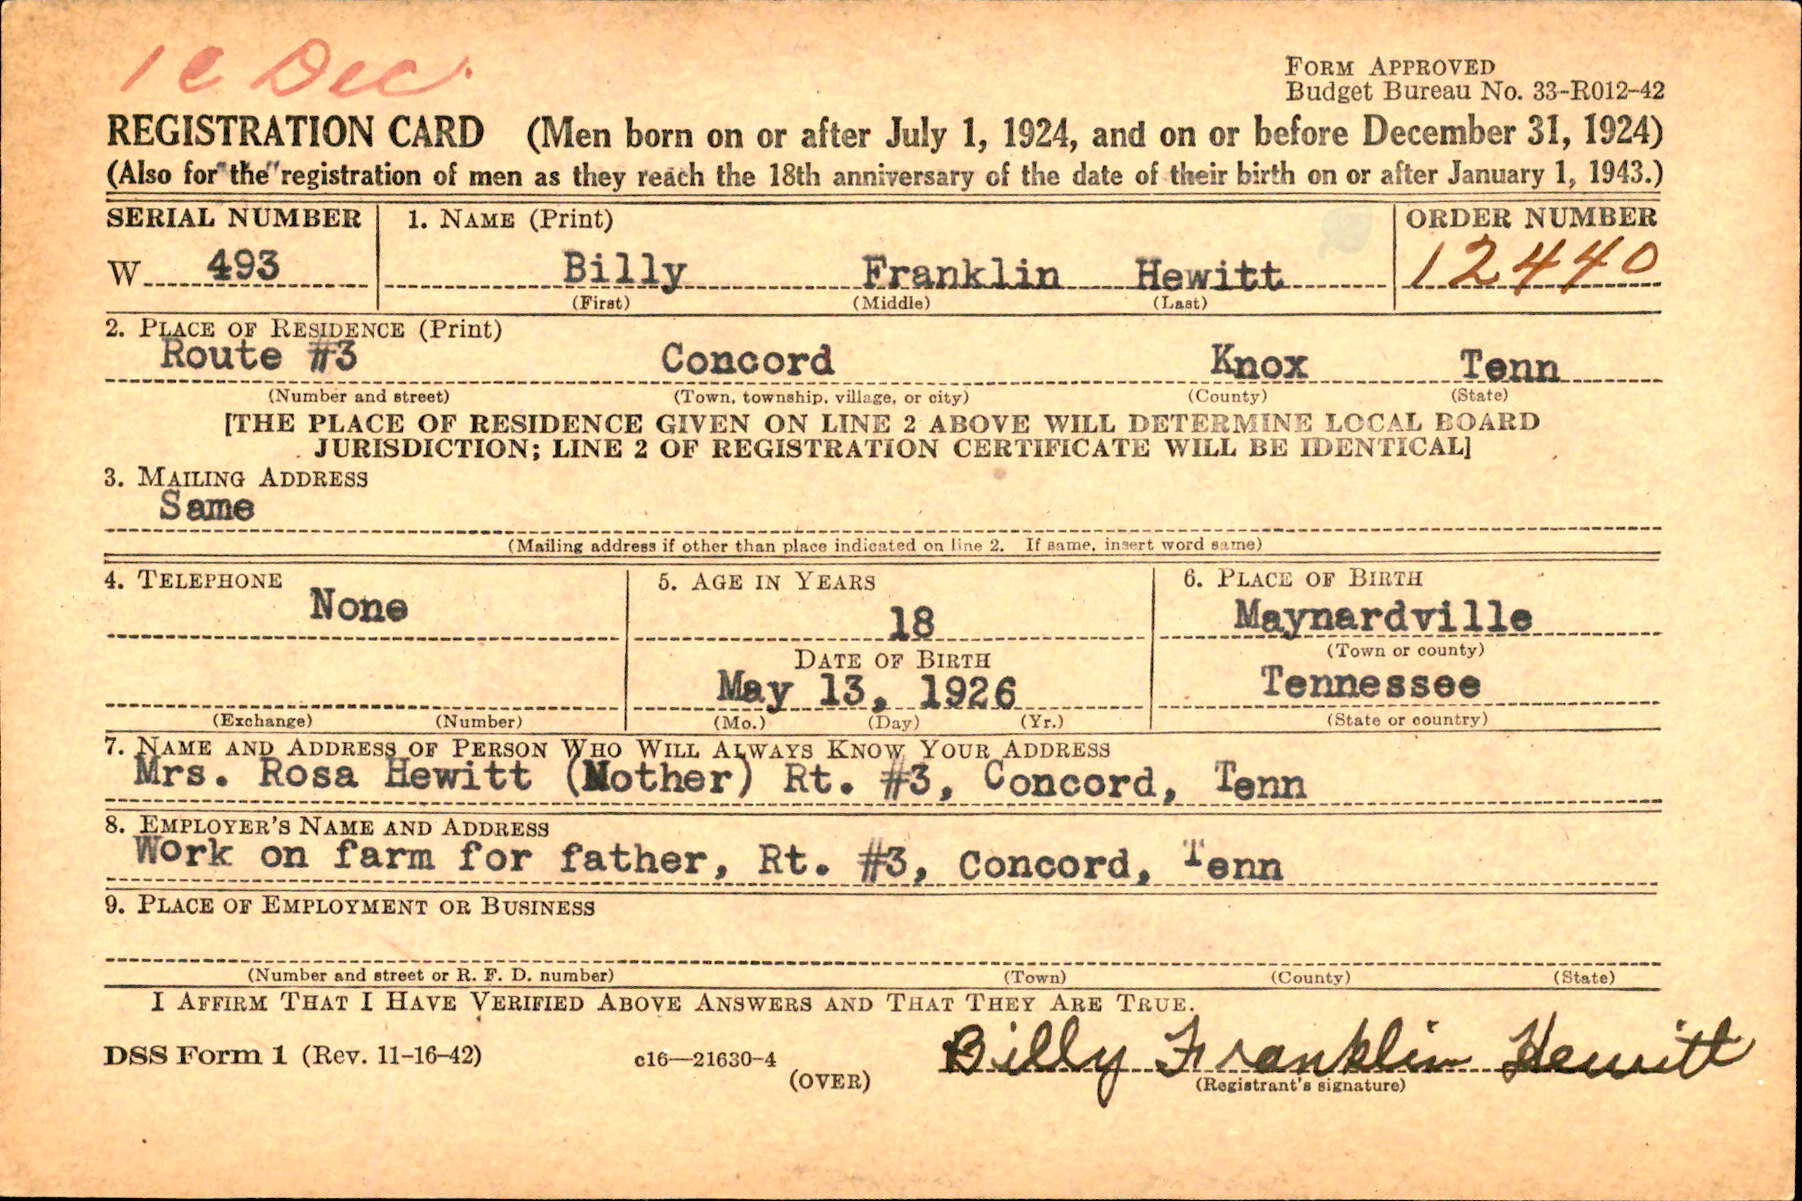 1C Dec.
FORM APPROVED
Budget Bureau No. 33-R012-42
REGISTRATION CARD (Men born on or after July 1, 1924, and on or before December 31, 1924)
(Also for the registration of men as they reach the 18th anniversary of the date of their birth on or after January 1, 1943.)
SERIAL NUMBER 1. NAME (Print) ORDER NUMBER
W 493 Billy Franklin Hewitt 12440
(First) (Middle) (Last)
2. PLACE OF RESIDENCE (Print)
Route #3 Concord Knox Tenn
(Number and street) (Town, township, village, or city) (County) (State)
[THE PLACE OF RESIDENCE GIVEN ON LINE 2 ABOVE WILL DETERMINE LOCAL BOARD
JURISDICTION; LINE 2 OF REGISTRATION CERTIFICATE WILL BE IDENTICAL]
3. MAILING ADDRESS
Same
(Mailing address if other than place indicated on line 2. If same, insert word same)
4. TELEPHONE 5. AGE IN YEARS 6. PLACE OF BIRTH
None 18 Maynardville
DATE OF BIRTH (Town or county)
May 13, 1926 Tennessee
(Exchange) (Number) (Mo.) (Day) (Yr.) (State or country)
7. NAME AND ADDRESS OF PERSON WHO WILL ALWAYS KNOW YOUR ADDRESS
Mrs. Rosa Hewitt (Mother) Rt. #3, Concord, Tenn
8. EMPLOYER'S NAME AND ADDRESS
Work on farm for father, Rt. #3, Concord, Tenn
9. PLACE OF EMPLOYMENT OR BUSINESS
(Number and street or R. F. D. number) (Town) (County) (State)
I AFFIRM THAT I HAVE VERIFIED ABOVE ANSWERS AND THAT THEY ARE TRUE.
DSS Form 1 (Rev. 11-16-42) c16—21630-4 Billy Franklin Hewitt
(OVER) (Registrant's signature)